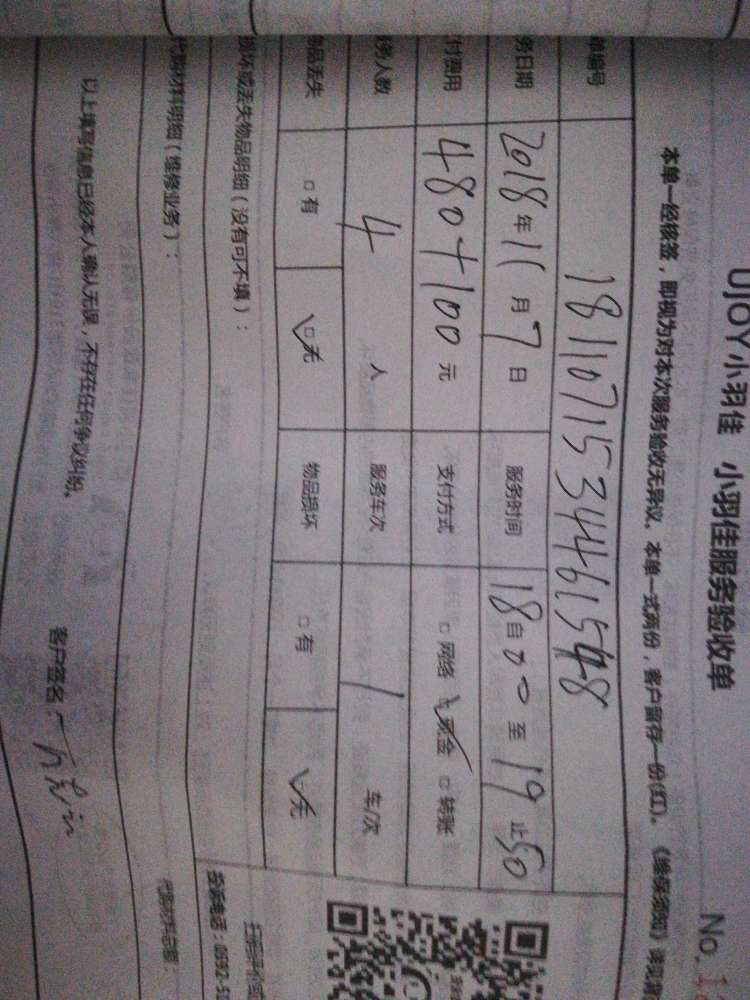 UJOY小羽佳 小羽佳服务验收单
No. 1
本单一经核签，即视为对本次服务验收无异议。本单一式两份，客户留存一份(红)。
单编号 1811071534461548
务日期 2018年11月7日 服务时间 18自00至19止50
付费用 480+100元 支付方式 □网络 ☑现金 □转账
务人数 4 人 服务车次 1 车/次
品丢失 □有 ☑无 物品损坏 □有 ☑无
损坏或丢失物品明细（没有可不填）：
代购材料明细（维修业务）：
以上填写信息已经本人确认无误，不存在任何争议纠纷。
客户签名：
投诉电话：0592-5